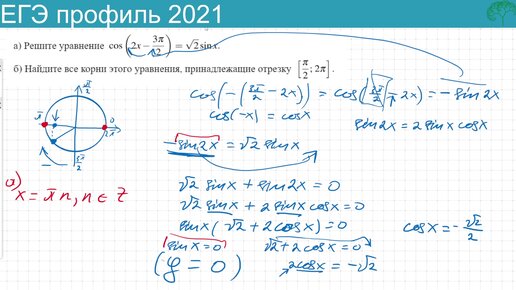 ЕГЭ профиль 2021
а) Решите уравнение cos(2x − 3π/2) = √2 sin x.
б) Найдите все корни этого уравнения, принадлежащие отрезку [π/2; 2π].
cos(−(3π/2 − 2x)) = cos(3π/2 − 2x) = − sin 2x
cos(−x) = cos x
sin 2x = 2 sin x cos x
− sin 2x = √2 sin x
√2 sin x + sin 2x = 0
√2 sin x + 2 sin x cos x = 0
sin x (√2 + 2 cos x) = 0
sin x = 0 √2 + 2 cos x = 0
(y = 0) 2 cos x = −√2
cos x = − √2/2
π/2
π
0
2π
3π/2
а)
x = πn, n ∈ Z